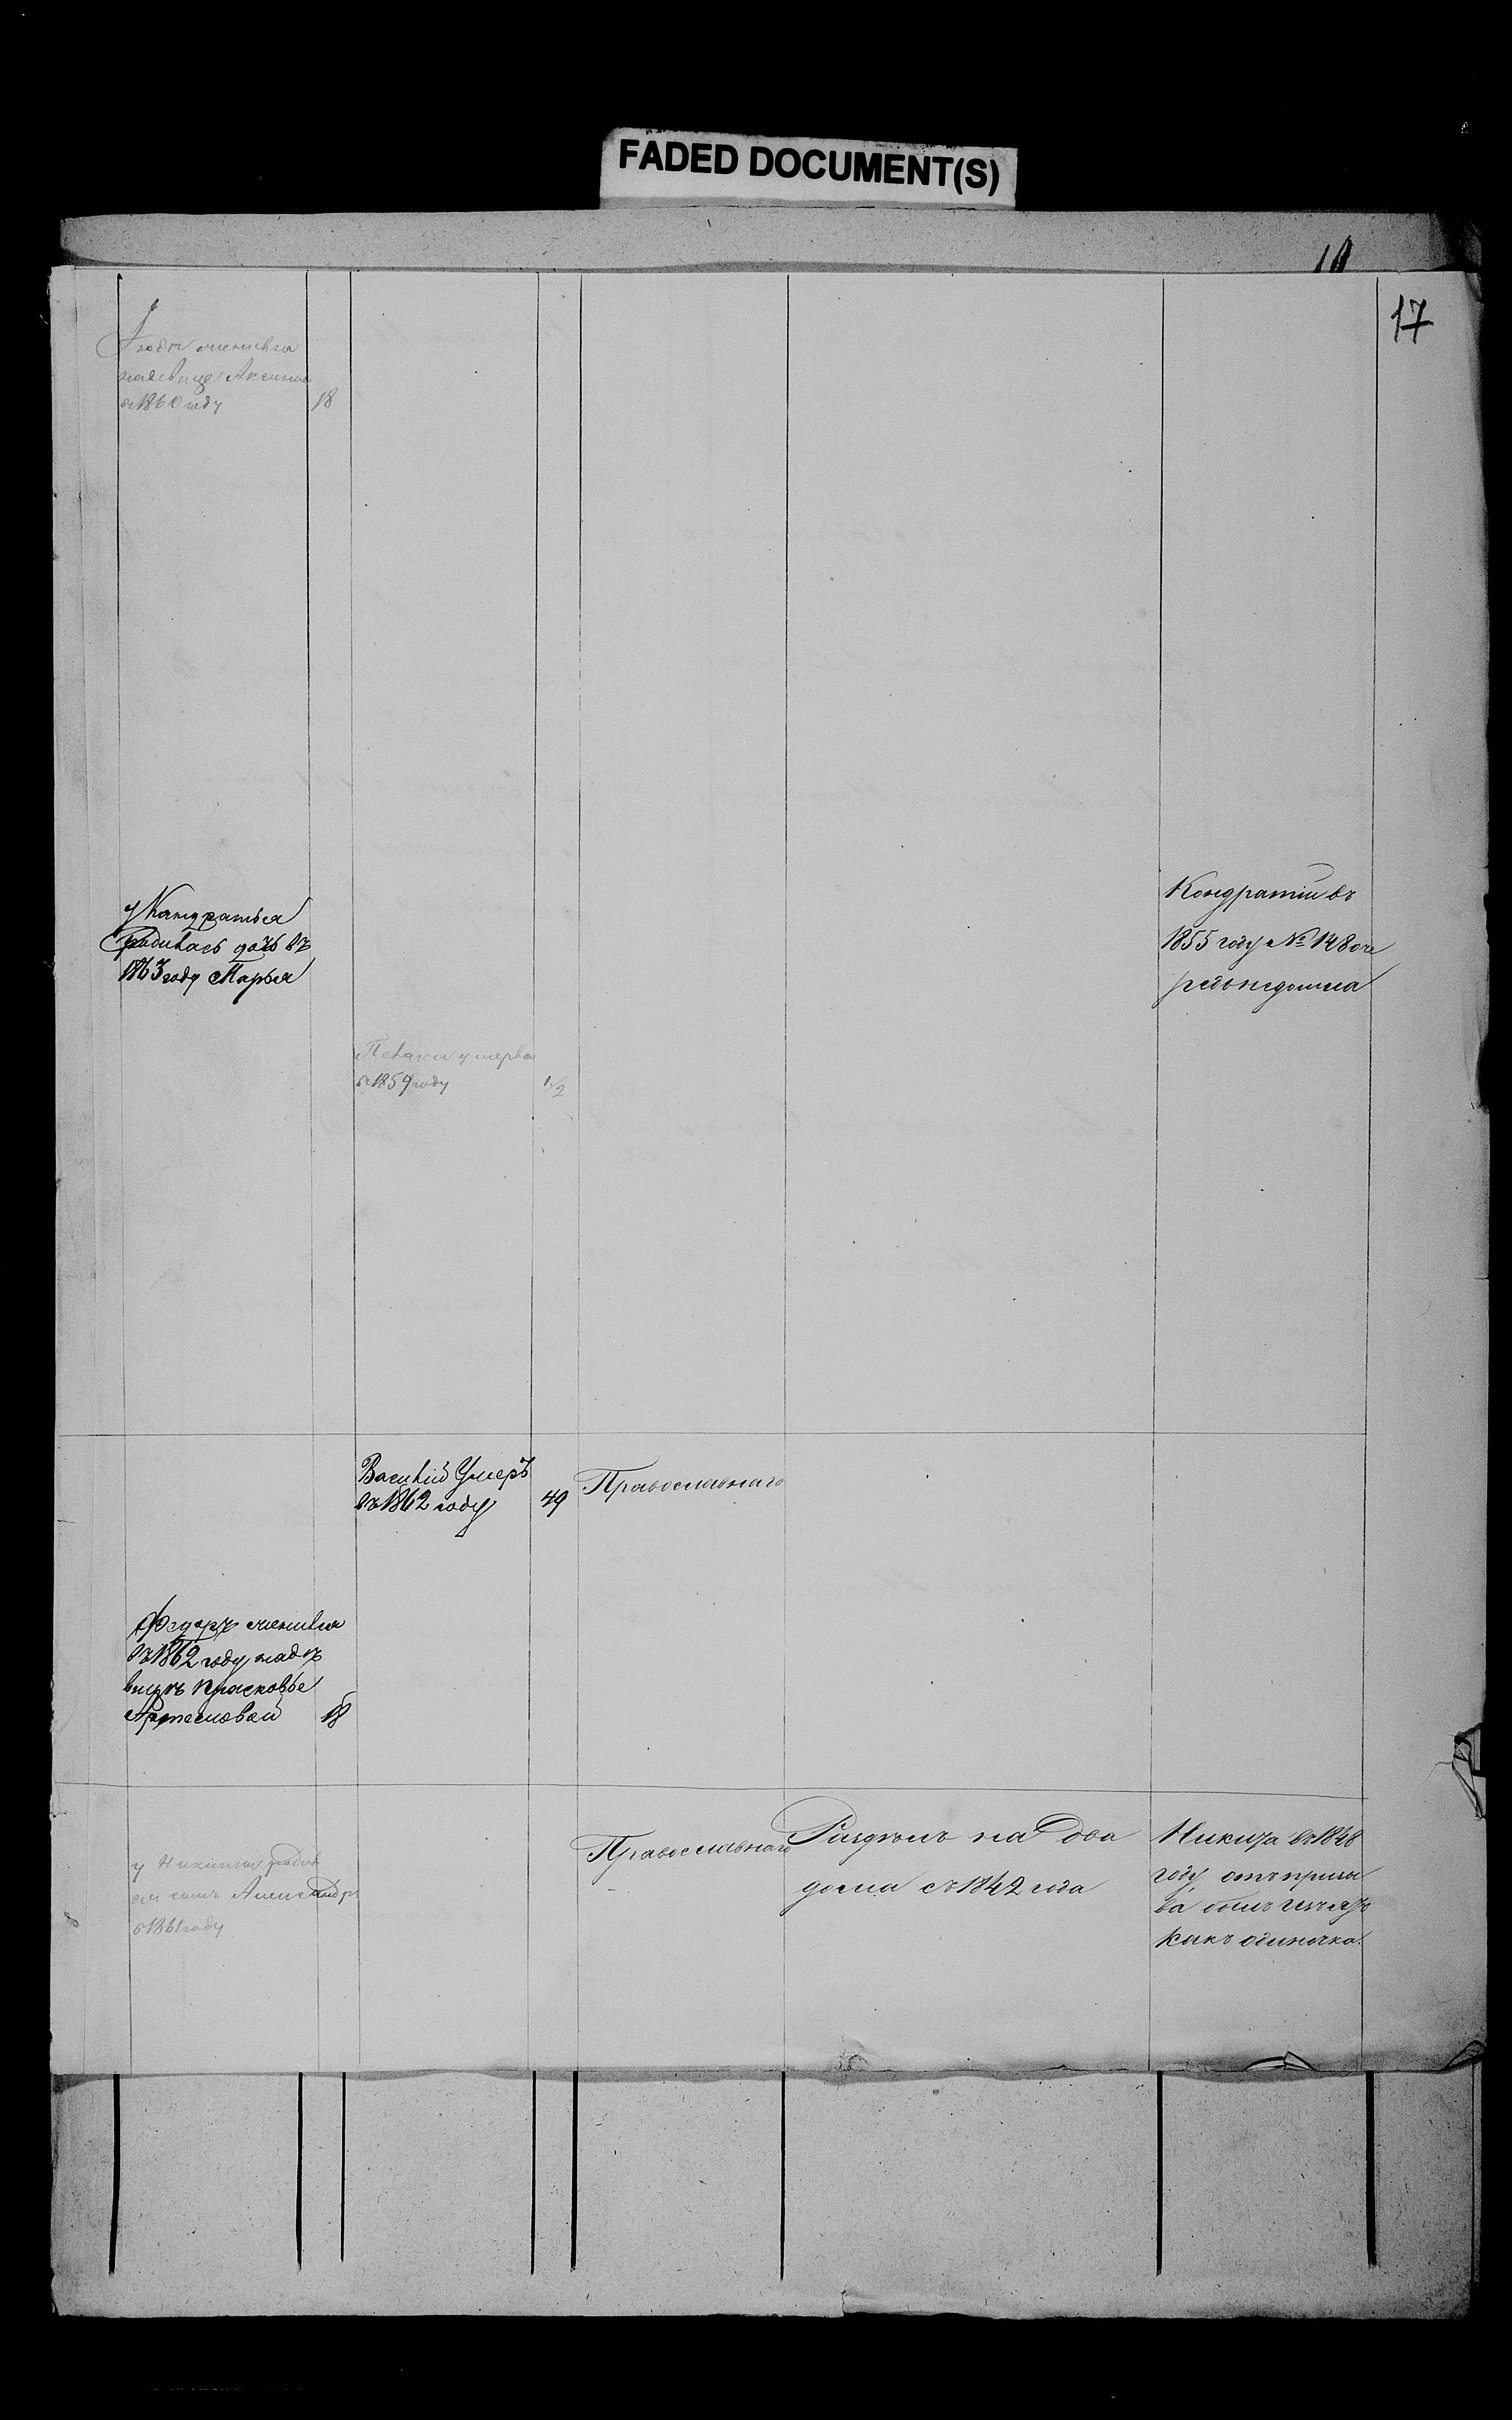 FADED DOCUMENT(S)
17
женился
на девице Аксинье
в 1860 году 18
у Кондратья
родилась дочь въ
1863 году Марья
Кондратий въ
1855 году № 148 оче
редь недошла
Пелагея умерла
в 1859 году 1/2
Василий Умеръ
въ 1862 году 49
Православнаго
Федоръ женился
въ 1862 году на дѣ
вицѣ Прасковье
Артемовой 18
у Никиты родил
ся сынъ Александръ
в 1861 году
Православнаго
Раздѣлъ на два
дома съ 1842 года
Никита въ 1848
году отъ призы
ва былъ изъятъ
какъ одиночка.